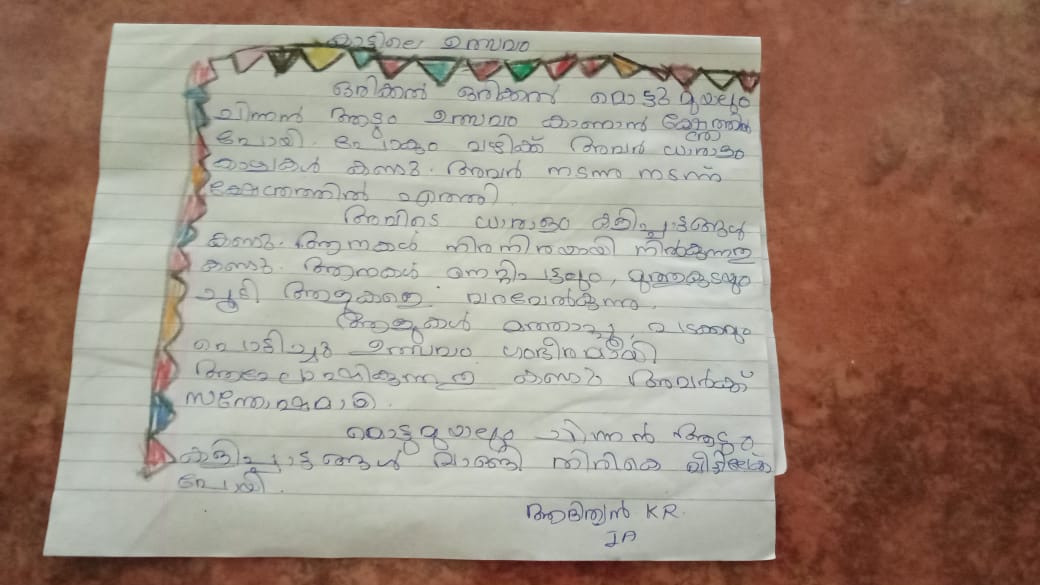 കാട്ടിലെ ഉത്സവം
ഒരിക്കൽ ഒരിക്കൽ മൊട്ടുമുയലും
ചിന്നൻ ആട്ടും ഉത്സവം കാണാൻ ക്ഷേത്രത്തിൽ
പോയി. പോകും വഴിക്ക് അവർ ധാരാളം
കാഴ്ചകൾ കണ്ടു. അവർ നടന്നു നടന്ന്
ക്ഷേത്രത്തിൽ എത്തി.
അവിടെ ധാരാളം കളിപ്പാട്ടങ്ങൾ
കണ്ടു. ആനകൾ നിരനിരയായി നിൽക്കുന്നത്
കണ്ടു. ആനകൾ നെറ്റിപ്പട്ടവും, മുത്തുകുടയും
ചൂടി ആളുകളെ വരവേൽക്കുന്നു.
ആളുകൾ മത്താപ്പും, പടക്കവും
പൊട്ടിച്ചു ഉത്സവം ഗംഭീരമായി
ആഘോഷിക്കുന്നത് കണ്ടു അവർക്ക്
സന്തോഷമായി.
മൊട്ടുമുയലും ചിന്നൻ ആട്ടും
കളിപ്പാട്ടങ്ങൾ വാങ്ങി തിരികെ വീട്ടിലേക്ക്
പോയി.
ആദിത്യൻ KR.
IA